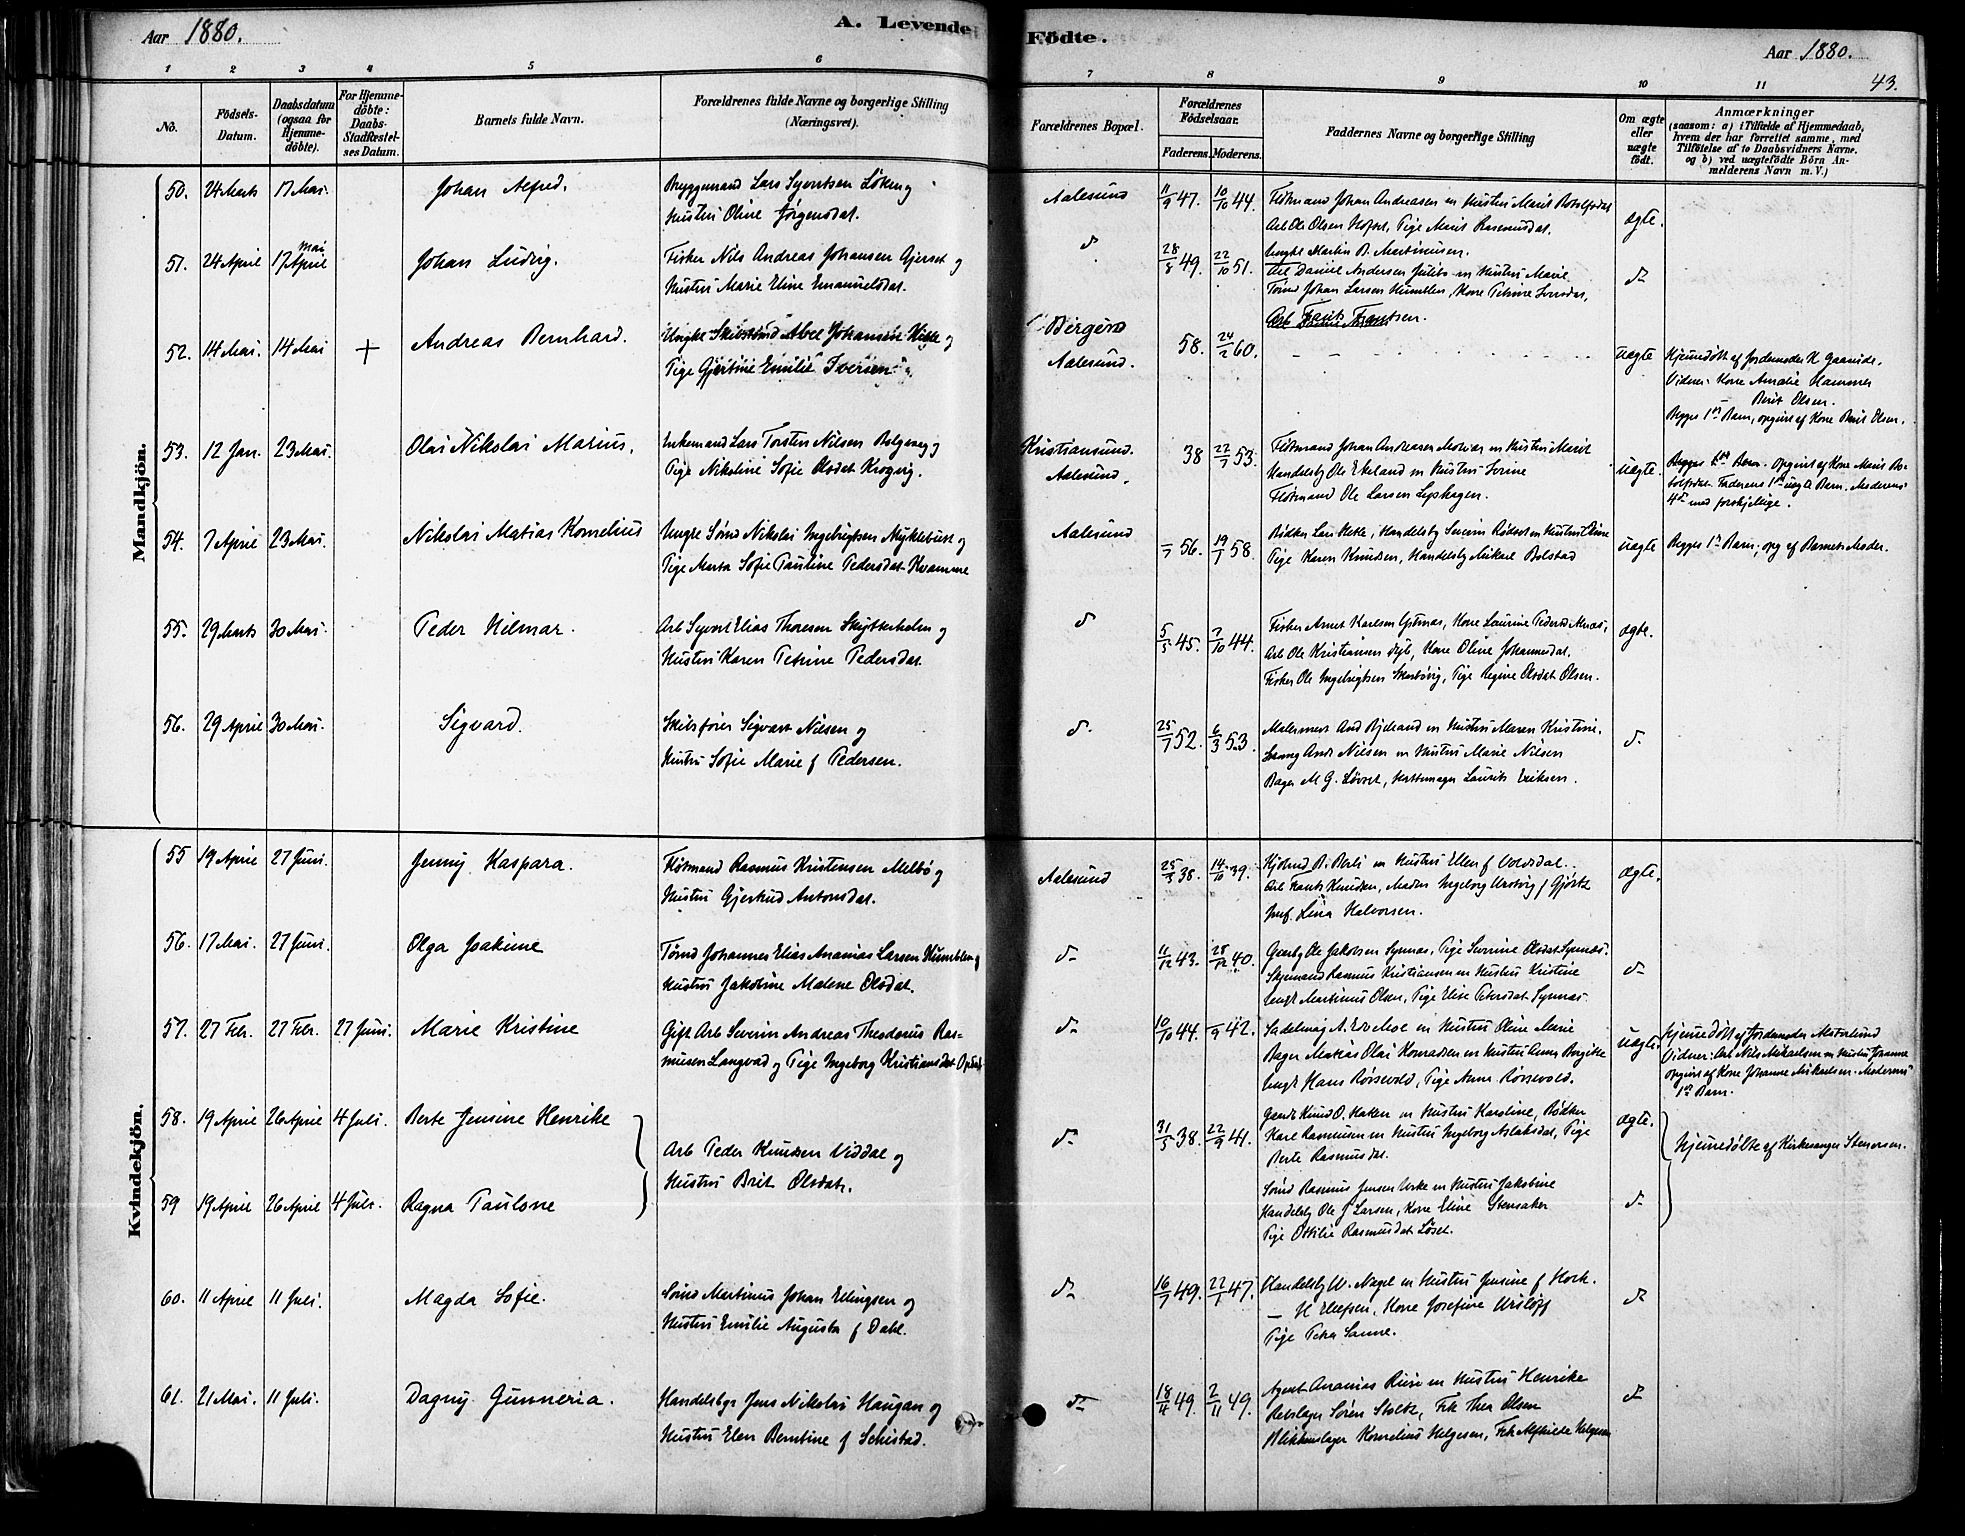 Aar 1880.
A. Levende Födte.
Aar 1880.
43.
1 2 3 4 5 6 7 8 9 10 11
No.
Födsels-Datum.
Daabsdatum (ogsaa for Hjemme-döbte).
For Hjemme-döbte: Daabs-Stadfæstel-ses Datum.
Barnets fulde Navn.
Forældrenes fulde Navne og borgerlige Stilling (Næringsvei).
Forældrenes Bopæl.
Forældrenes Födselsaar.
Faderens. Moderens.
Faddernes Navne og borgerlige Stilling
Om ægte eller uægte födt.
Anmærkninger
(saasom: a) i Tilfælde af Hjemmedaab,
hvem der har forrettet samme, med
Tilföielse af to Daabsvidners Navne.
og b) ved uægtefödte Börn An-
melderens Navn m. V.)
Mandkjön.
50. 24 Marts 17 Mai. Johan Alfred.
Hustru Oline Jörgensdat.
Aalesund 11/9 47. 10/10 44.
Flötmand Johan Andreasen m Hustru Marit
Arb Ole Olsen, Pige Marit Rasmusdat.
ægte.
51. 24 April 17 April Mai Johan Ludvig.
Fisker Nils Andreas Johansen Gjerset og
Hustru Marie Eline Emanuelsdat.
d 28/8 49. 22/10 51.
Ungkl Martin B. Martinusen.
Arb Daniel Andersen m Hustru Marie
Tömd Johan Larsen Humblen, Kone Petrine
Arb Frants Frantsen.
d
52. 14 Mai. 14 Mai + Andreas Bernhard.
Ungkl Skibstömd Abel Johansen og
Pige Gjertine Emilie Iversen
Bergen
Aalesund. 58. 24/2 60.
uægte
Hjemmedöbt af Jordemoder K Gaaseide.
Vidner: Kone Amalie Hammer
— Berit Olsen.
Begges 1ste Barn, opgivet af Kone Berit Olsen.
53. 12 Jan. 23 Mai. Olai Nikolai Marius.
Enkemand Lars Torsten Nilsen og
Pige Nikoline Sofie Olsdat
Kristiansund.
Aalesund. 38 22/7 53.
Flötmand Johan Andreasen m Hustru Marit
Handelsb Ole Ekeland m Hustru
Flötmand Ole Larsen
uægte.
Begges 1ste Barn. Opgivet af Kone Marit
Faderens 1ste uægte Barn. Moderens
4de med forskjellige.
54. 7 April 23 Mai. Nikolai Matias Kornelius
Ungkl Sömd Nikolai Ingebrigtsen Myklebust og
Pige Marta Sofie Pauline Pedersdat Kvamme
Aalesund 56. 19/7 58.
Bödker Lars, Handelsb Severin m Hustru
Pige Karen Knudsen, Handelsb Mikael Bolstad
uægte
Begges 1ste Barn, opg af Barnets Moder.
55. 29 Marts 30 Mai. Peder Hilmar.
Arb Sjovel Elias Thoresen Skytterholm og
Hustru Karen Petrine Pedersdat.
d 5/5 45. 7/10 44.
Fisker Karlsen, Kone Laurine
Arb Ole Kristiansen, Kone Oline Johannesdat.
Fisker Ole Ingebrigtsen, Pige Regine Olsdat Olsen.
ægte.
56. 29 April 30 Mai. Sigvard.
Skibsförer Sigvart Nilsen og
Hustru Sofie Marie f Pedersen.
d. 25/7 52. 6/3 53.
Malermest And m Hustru Maren Kristine.
And Nilsen m Hustru Marie Nilsen
Bager M G. Lövset, Hattemager Laurits Eriksen.
d.
Kvindekjön.
55 19 April 27 Juni. Jenny Kaspara.
Flötmand Rasmus Kristensen Melbö og
Hustru Gjertrud Antonsdat.
Aalesund 25/3 38. 14/10 39.
m Hustru Ellen f Voldsdal.
Arb Frants Knudsen, Madm Ingeborg f Gjörtz
Jmf. Lina Halvorsen.
ægte.
56. 17 Mai. 27 Juni. Olga Joakime
Tömd Johannes Elias Ananias Larsen Humblen og
Hustru Jakobine Malene Olsdat.
d 11/12 43. 28/12 40.
Gaardb Ole Jakobsen Synnæs, Pige Severine Olsdat Synnæs.
Rasmus Kristiansen m Hustru Kristine
Ungk Martinus Olsen, Pige Elise Petersdat Synnæs
d
57. 27 Febr. 27 Febr. 27 Juni. Marie Kristine
Gift Arb Severin Andreas Theodorus Ras-
musen Langvad og Pige Ingeborg Kristiansdat
d 10/10 44. /9 42.
Sadelmag A. m Hustru Oline Marie
Bager Matias Olai Konradsen m Hustru Anna Birgitte
Ungk Hans Rörsvold, Pige Anne Rörsvold.
uægte.
Hjemmedöbt af Jordemoder
Vidner: Arb Nils Mikaelsen m Hustru Johanne
opgivet af Kone Johanne Mikaelsen. Moderens
1ste Barn.
58. 19 April 26 April 4 Juli. Berte Jensine Henrike
Arb Peder Knudsen Viddal og
Hustru Brit Olsdat.
d 31/5 38. 22/9 41.
Gaardb Knud O. m Hustru Karoline, Bödker
Kare Rasmusen m Hustru Ingeborg Aslaksdat, Pige
Berte Rasmusdat.
ægte.
Hjemmedöbte af Kirkesanger Stenersen.
59 19 April 26 April 4 Juli. Ragna Paulone
Sömd Rasmus Jensen m Hustru Jakobine
Handelsb Ole J Larsen, Kone Eline Stensaker
Pige Ottilie Rasmusdat Löset.
d
60. 11 April 11 Juli. Magda Sofie.
Sömd Martinus Johan Ellingsen og
Hustru Emilie Augusta f Dahl.
d 16/7 49. 22/1 47.
Handelsb W. Nagel m Hustru Jensine f Hock.
— H Ellefsen, Kone Josefine
Pige Petra Sanne.
d
61. 21 Mai. 11 Juli. Dagny Gunneria.
Handelsbgr Jens Nikolai Haugan og
Hustru Elen Berntine f Schistad.
d 18/4 49. 2/11 49.
Agent Ananias Riise m Hustru Henrike
Rebslager Sören Stoltz, Frk Thea Olsen
Blikkenslager Kornelius Helgesen, Frk Alfhilde Helgesen
d